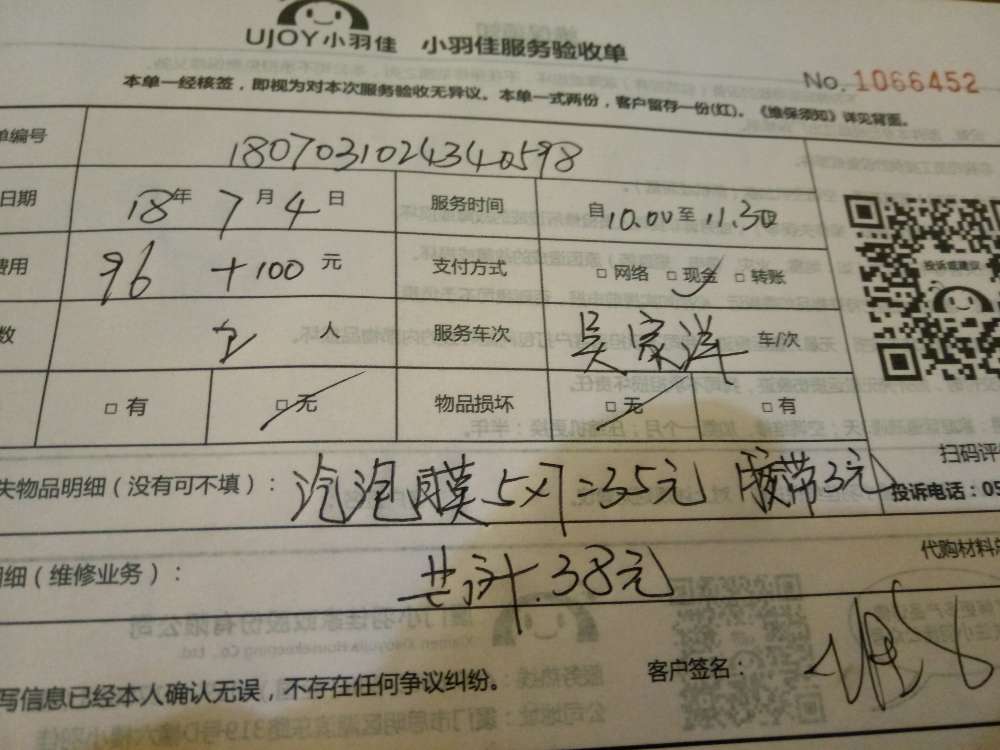 UJOY小羽佳 小羽佳服务验收单
No. 1066452
本单一经核签，即视为对本次服务验收无异议。本单一式两份，客户留存一份(红)。《维保须知》详见背面。
单编号 1807031024340598
日期 18年 7月 4日 服务时间 自10.00至11.30
费用 96 +100元 支付方式 □网络 □现金 □转账
数 2人 服务车次 吴家洋 车/次
□有 □无 物品损坏 □无 □有
投诉或建议
扫码评
失物品明细（没有可不填）： 汽泡膜 5×7=35元 胶带3元
投诉电话：05
代购材料总
明细（维修业务）： 共计.38元
写信息已经本人确认无误，不存在任何争议纠纷。 客户签名：